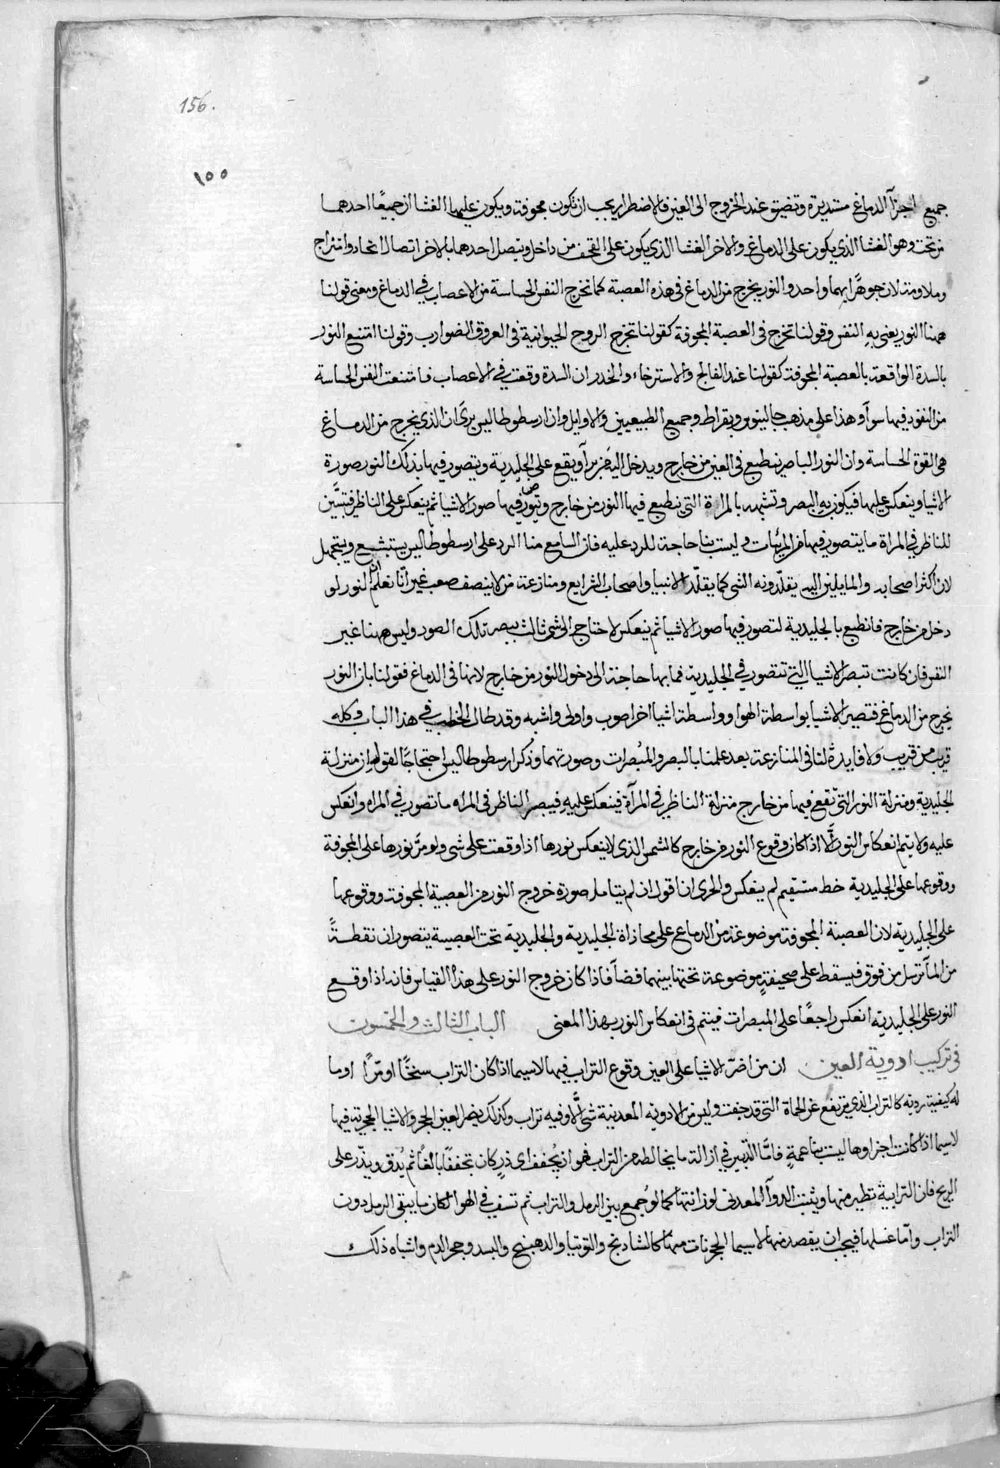 156.
١٥٥
جميع اجزآ الدماغ مستديرة وتضيق عند الخروج الى العين فبالاضطرار يجب ان تكون مجوفة ويكون عليها الغشاان جميعًا احدهما
من تحت وهو الغشا الذي يكون على الدماغ والاخر الغشا الذي يكون على القحف من داخل ويتصل احدهما بالاخر اتصال اتحاد وامتزاج
وملاومة لان جوهرًا بهما واحد والنور يخرج من الدماغ في هذه العصبة كما تخرج النفس الحساسة من الاعصاب في الدماغ ومعنى قولنا
ههنا النور يعنى به النفس وقولنا تخرج في العصبة المجوفة كقولنا تخرج الروح الحيوانية في العروق الضوارب وقولنا امتنع النور
بالسدة الواقعة بالعصبة المجوفة كقولنا عند الفالج والاسترخاء والخدر ان السدة وقعت في الاعصاب فامتنعت النفس الحساسة
من النفود فيها سوآ وهذا على مذهب جالينوس وبقراط وجميع الطبيعيين والاوايل وان ارسطوطاليس يرى ان الذي يخرج من الدماغ
هي القوة الحساسة وان النور الباصر ينطبع في العين من خارج ويدخل اليه ويقع على الجليدية ويتصور فيها بذلك النور صورة
الاشيا وينعكس عليها فيكون به البصر وتشبهه بالمراة التي تنطبع فيها النور من خارج وتصور فيها صور الاشيا ثم ينعكس على الناظر فتبين
للناظر في المراة ما يتصور فيها من المرئيات وليست بنا حاجة للرد عليه فان السامع منا الرد على ارسطوطاليس يستبشع ويتجهل
لان اكثر اصحابه والمايلين اليه يقلدونه الشي كما يقلد الانبيا واصحاب الشرايع ومنازعة من لا ينصف صعب غير انا نعلم ان النور لو
دخل من خارج فانطبع بالجليدية لتصور فيها صور الاشيا ثم ينعكس لاحتاج الى شي ثالث يبصر تلك الصور وليس ههنا غير
النفس فان كانت تبصر الاشيا التي تتصور في الجليدية فما بها حاجة الى دخول النور من خارج لانها في الدماغ فقولنا بان النور
يخرج من الدماغ فتبصر الاشيا بواسطة الهوا وواسطة اشيا اخر اصوب واولى واشبه وقد طال الخطب في هذا الباب وكله
قريب من قريب ولا فايدة لنا في المنازعة بعد علمنا بالبصر والمبصرات وصورتهما وذكر ارسطوطاليس احتجاجًا لقوله ان منزلة
الجليدية ومنزلة النور التي تقع فيها من خارج منزلة الناظر في المرآة فينعكس عليه فيبصر الناظر في المراه ما تصور في المراه وانعكس
عليه ولا يتم انعكاس النور الا اذا كان وقوع النور من خارج كالشمس الذي لا ينعكس نورها اذا وقعت على شي ولو مر نورها على المجوفة
ووقوعها على الجليدية خط مستقيم لم ينعكس والحرى ان اقول ان لم يتامل صورة خروج النور من العصبة المجوفة ووقوعها
على الجليدية لان العصبة المجوفة موضوعة من الدماغ على محاذاة الجليدية والجليدية تحت العصبة يتصور ان نقطةً
من المآ ترسل من فوق فيسقط على صحيفةٍ موضوعة تحتها بينهما فضآ فاذا كان خروج النور على هذا القياس فانه اذا وقع
النور على الجليدية انعكس راجعًا على المبصرات فيتم في انعكاس النور بهذا المعنى الباب الثالث والخمسون
في تركيب ادوية العين ان من اضر الاشيا على العين وقوع التراب فيها لاسيما اذا كان التراب سبخًا او مرًا او ما
له كيفية ردية كالتراب الذي يرتفع عن الحماة التي قد جفت وليس من الادوية المعدنية شي الا وفيه تراب وكذلك يضر العين الحجر والاشيا الحجرية فيها
لاسيما اذا كانت اجزاوها ليست بناعمةٍ فاما التدبير في ازالة ما يخالطه من التراب فهو ان يجفف اى ذرٍ كان تجفيفًا بالغًا ثم يدق ويذر على
الريح فان الترابية تطير منها ويثبت الدوآ المعدني لوزانتها كما لو جمع بين الرمل والتراب ثم تسفي في الهوا لكان ما يبقى الرمل دون
التراب واما غسلها فيجب ان يقصد منها لاسيما الحجريات منها كالشادنج والتوتيا والدهنج والبسد وحجر الدم واشباه ذلك